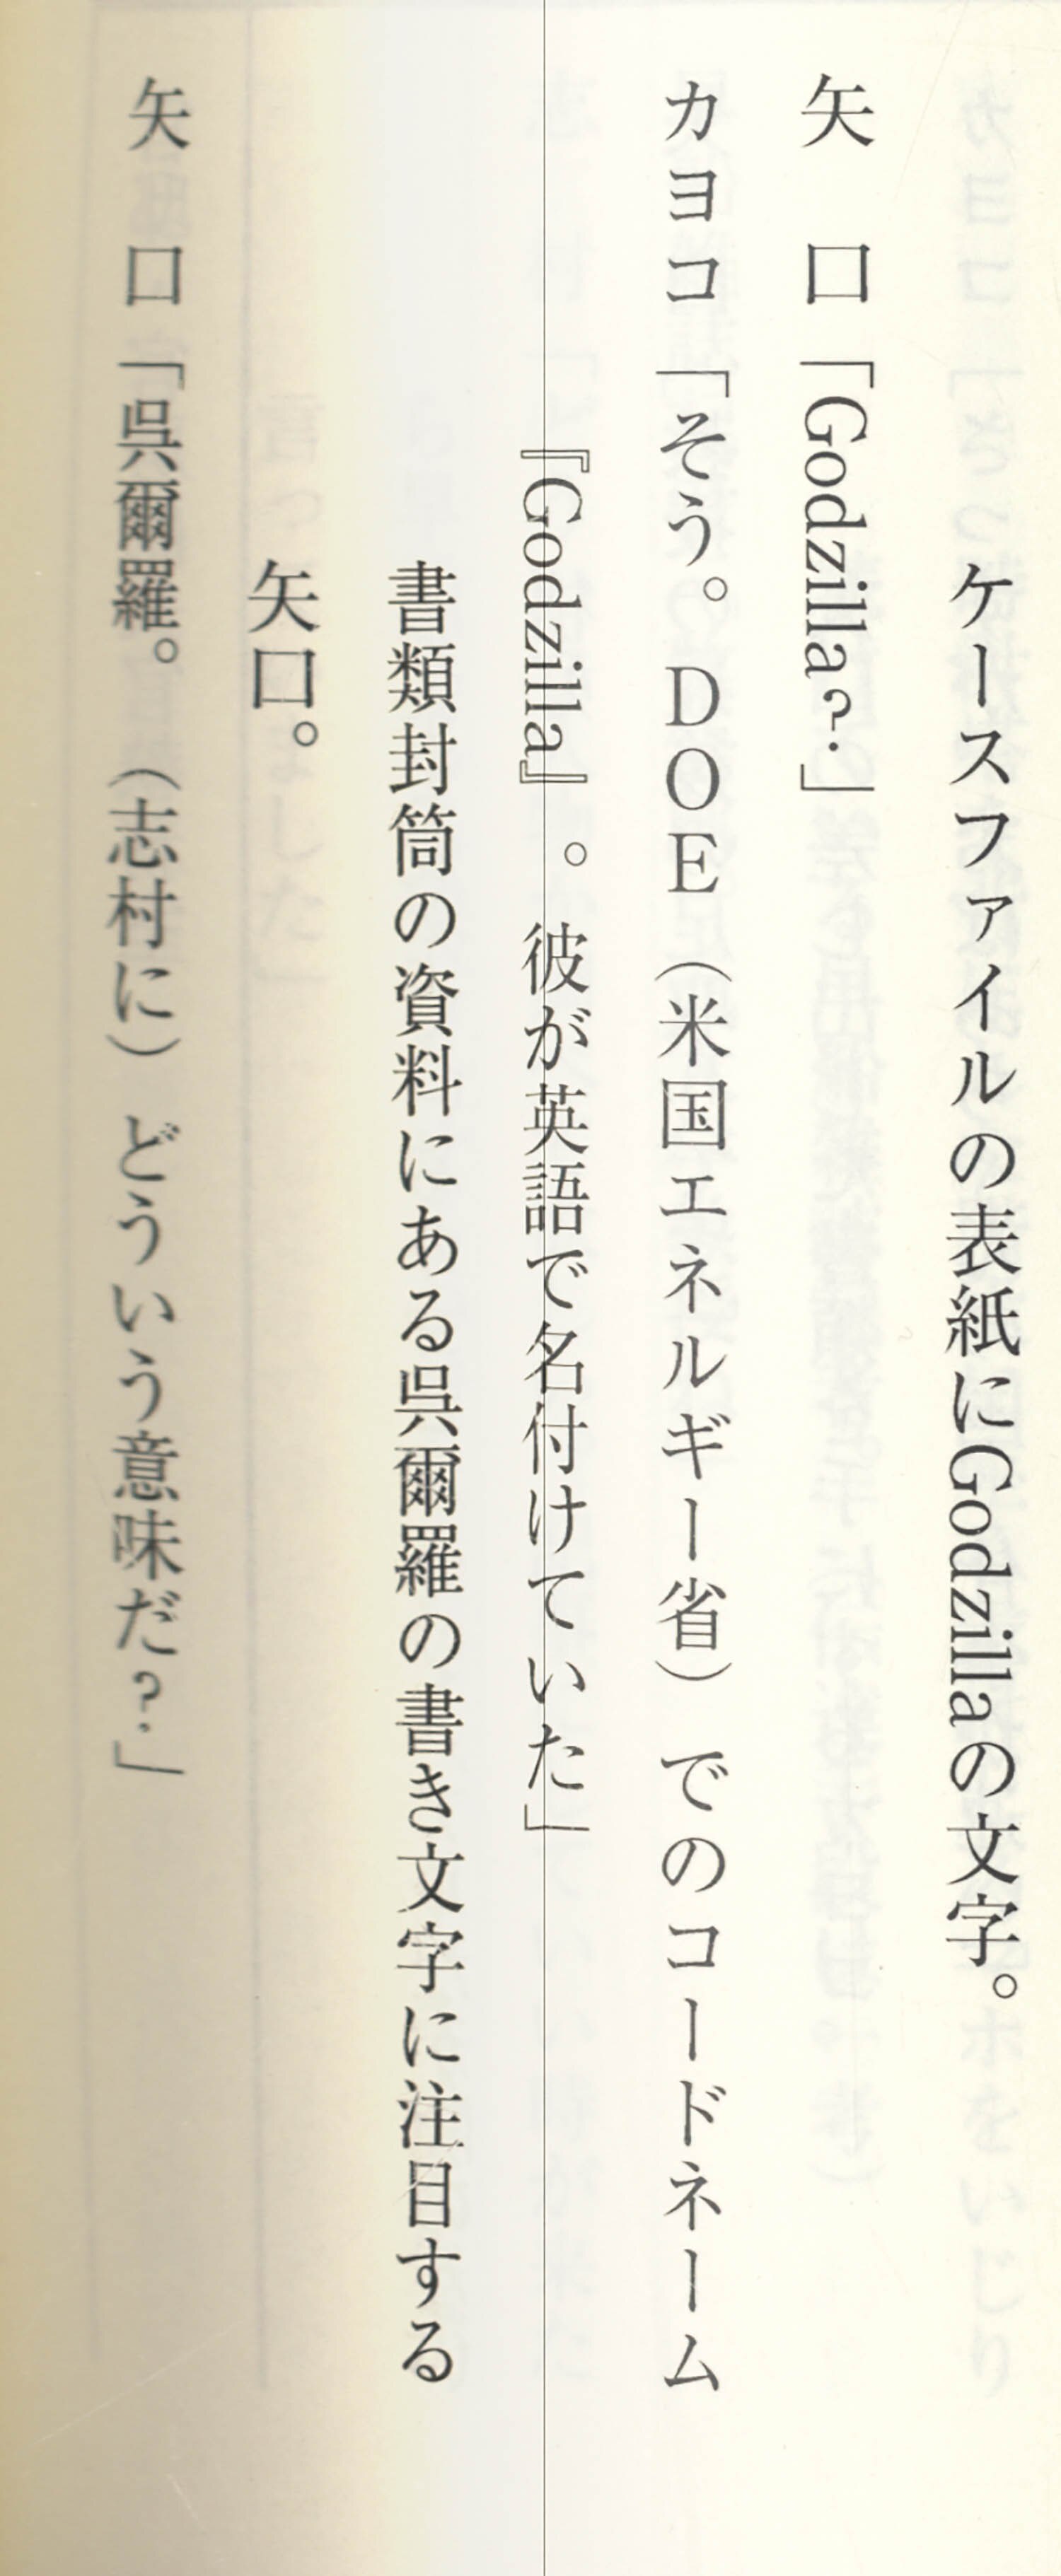 ケースファイルの表紙にGodzillaの文字。
矢　口「Godzilla?」
カヨコ「そう。DOE（米国エネルギー省）でのコードネーム
『Godzilla』。彼が英語で名付けていた」
書類封筒の資料にある呉爾羅の書き文字に注目する
矢口。
矢　口「呉爾羅。（志村に）どういう意味だ?」